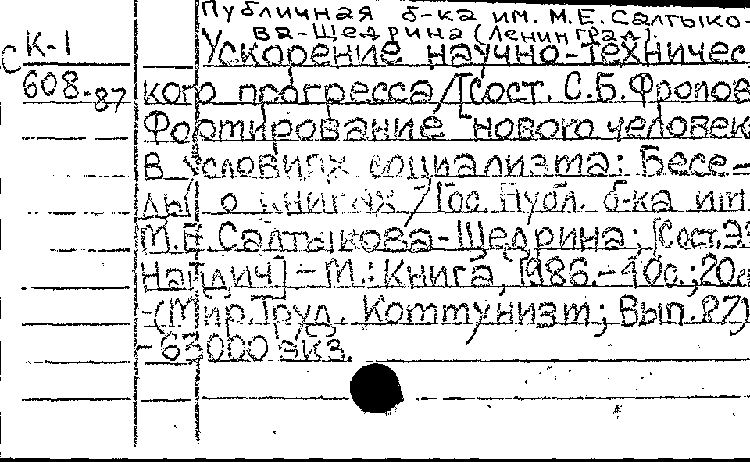 Публичная б-ка им. М.Е. Салтыко-
ва-Щедрина (Ленинград).
С К-1 Ускорение научно-техничес
608-87 кого прогресса/[Сост. С.Б. Фролов
Формирование нового человек
в условиях социализма: Бесе-
ды о книгах / Гос. Публ. б-ка им
М.Е. Салтыкова-Щедрина; [Сост.
] - М.: Книга, 1986.-40с.; 20с
-(Мир. Труд. Коммунизм; Вып. 87)
-63000 экз.